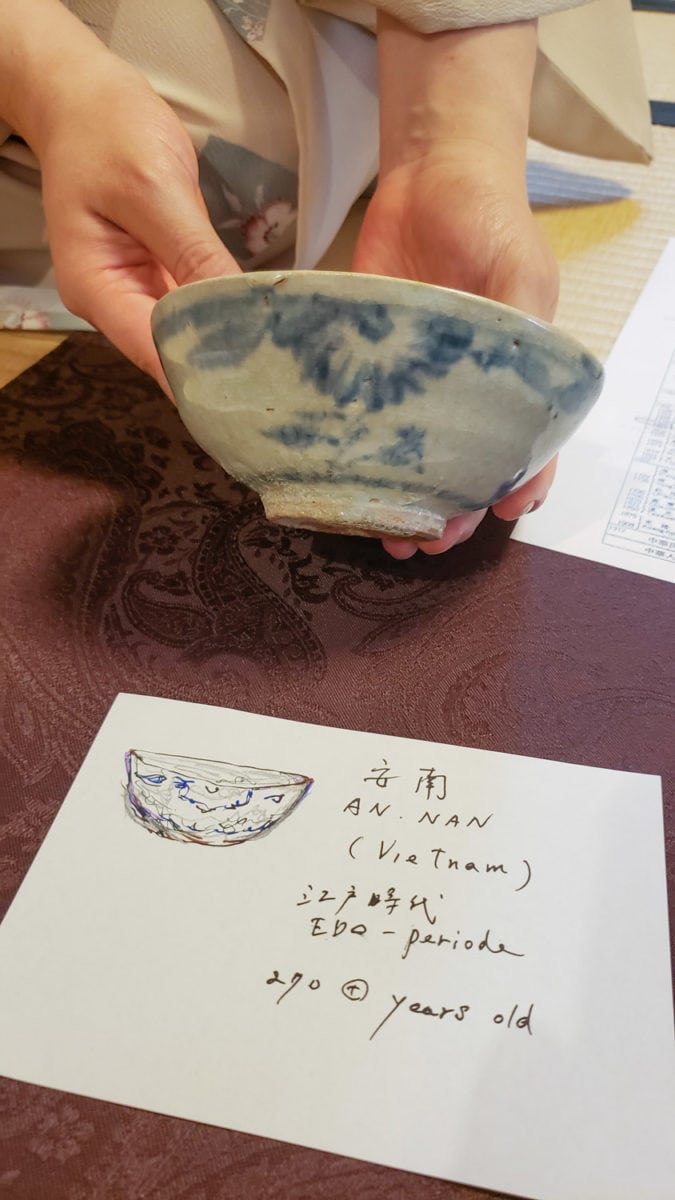 安南
AN.NAN
(Vietnam)
江戸時代
EDO-periode
270 ⊕ years old